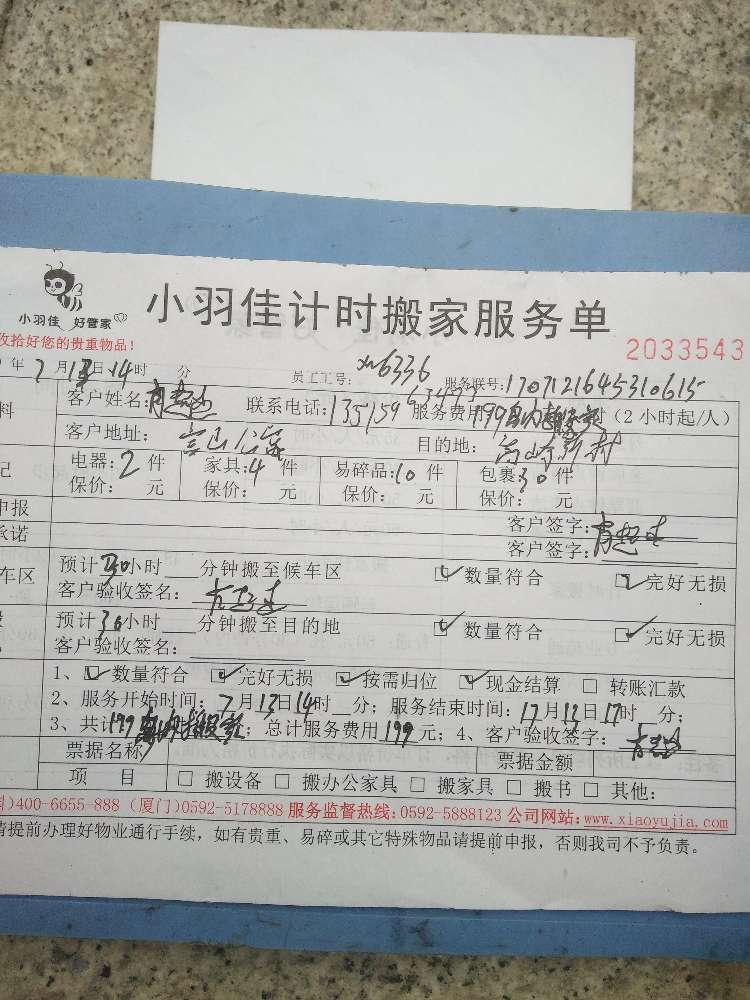 小羽佳 好管家
小羽佳计时搬家服务单
收拾好您的贵重物品!
2033543
年7月13日14时 分
员工工号: 6336
服务联号:1707121645310615
料
客户姓名:
联系电话:13515963493
服务费用199岛内 (2小时起/人)
客户地址:
目的地: 高崎新村
记
电器:2件
保价: 元
家具:4件
保价: 元
易碎品:10件
保价: 元
包裹:30件
保价: 元
申报
客户签字:
承诺
客户签字:
车区
预计30小时 分钟搬至候车区
☑数量符合 ☑完好无损
客户验收签名:
预计30小时 分钟搬至目的地
☑数量符合 ☑完好无损
客户验收签名:
1、☑数量符合 ☑完好无损 ☑按需归位 ☑现金结算 □转账汇款
2、服务开始时间:7月13日14时 分;服务结束时间:17月13日17时 分;
3、共计199 ;总计服务费用199元;4、客户验收签字:
票据名称
票据金额
项 目 □搬设备 □搬办公家具 □搬家具 □搬书 □其他:
)400-6655-888 (厦门)0592-5178888 服务监督热线:0592-5888123 公司网站:www.xiaoyujia.com
请提前办理好物业通行手续,如有贵重、易碎或其它特殊物品请提前申报,否则我司不予负责。